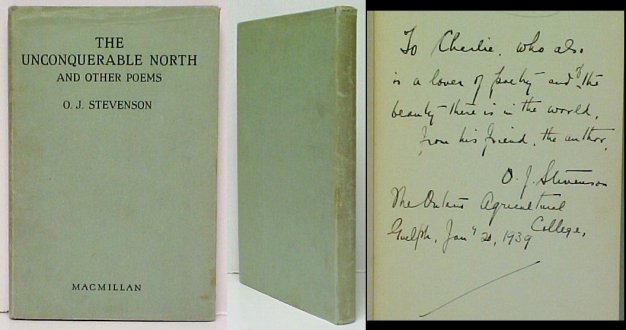 THE
UNCONQUERABLE NORTH
AND OTHER POEMS
O. J. STEVENSON
MACMILLAN
To Charlie, who also
is a lover of poetry and of the
beauty there is in the world,
from his friend, the author,
O. J. Stevenson
The Ontario Agricultural
College,
Guelph, Jany 1939